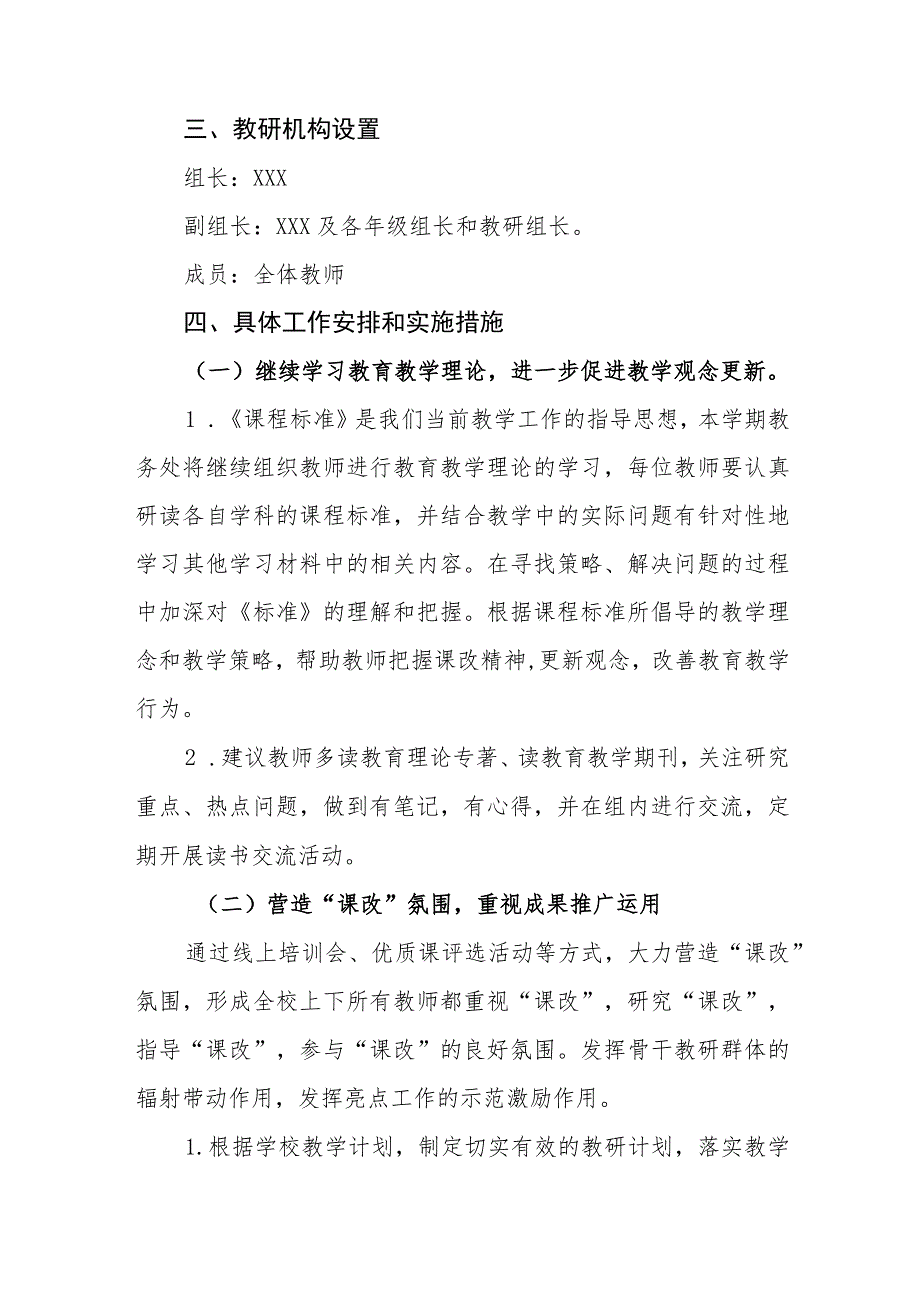 三、教研机构设置
组长：XXX
副组长：XXX 及各年级组长和教研组长。
成员：全体教师
四、具体工作安排和实施措施
（一）继续学习教育教学理论，进一步促进教学观念更新。
1 .《课程标准》是我们当前教学工作的指导思想，本学期教
务处将继续组织教师进行教育教学理论的学习，每位教师要认真
研读各自学科的课程标准，并结合教学中的实际问题有针对性地
学习其他学习材料中的相关内容。在寻找策略、解决问题的过程
中加深对《标准》的理解和把握。根据课程标准所倡导的教学理
念和教学策略，帮助教师把握课改精神,更新观念，改善教育教学
行为。
2 .建议教师多读教育理论专著、读教育教学期刊，关注研究
重点、热点问题，做到有笔记，有心得，并在组内进行交流，定
期开展读书交流活动。
（二）营造“课改”氛围，重视成果推广运用
通过线上培训会、优质课评选活动等方式，大力营造“课改”
氛围，形成全校上下所有教师都重视“课改”，研究“课改”，
指导“课改”，参与“课改”的良好氛围。发挥骨干教研群体的
辐射带动作用，发挥亮点工作的示范激励作用。
1.根据学校教学计划，制定切实有效的教研计划，落实教学